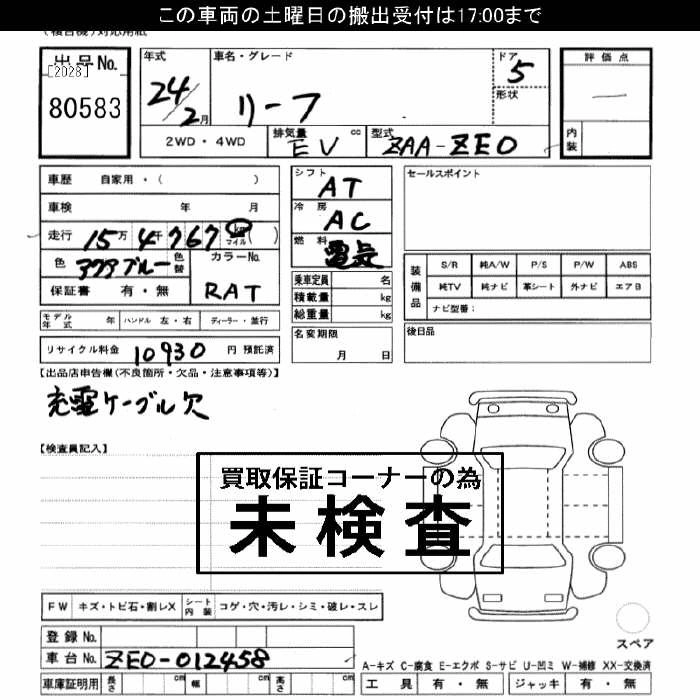 この車両の土曜日の搬出受付は17:00まで
出品No.
[2028]
80583
年式
24/2月
車名・グレード
リーフ
ドア
5
形状
評価点
—
内装
2WD・4WD
排気量 EV cc
型式 ZAA-ZE0
車歴 自家用・( )
車検 年 月
走行 15万4千767 km マイル ( )
色 アクアブルー 色替
カラーNo.
RAT
保証書 有・無
シフト
AT
冷房
AC
燃料
電気
乗車定員 名
積載量 kg
総重量 kg
セールスポイント
装備品
S/R 純A/W P/S P/W ABS
純TV 純ナビ 革シート 外ナビ エアB
ナビ型番:
モデル年式 年 ハンドル 左・右 ディーラー・並行
名変期限
月 日
後日品
リサイクル料金 10930 円 預託済
【出品店申告欄(不良箇所・欠品・注意事項等)】
充電ケーブル欠
【検査員記入】
買取保証コーナーの為
未検査
FW キズ・トビ石・割レX シート内装 コゲ・穴・汚レ・シミ・破レ・スレ
スペア
登録No.
車台No. ZE0-012458
A-キズ C-腐食 E-エクボ S-サビ U-凹ミ W-補修 XX-交換済
車庫証明用 長さ cm 幅 cm 高さ cm
工具 有・無 ジャッキ 有・無